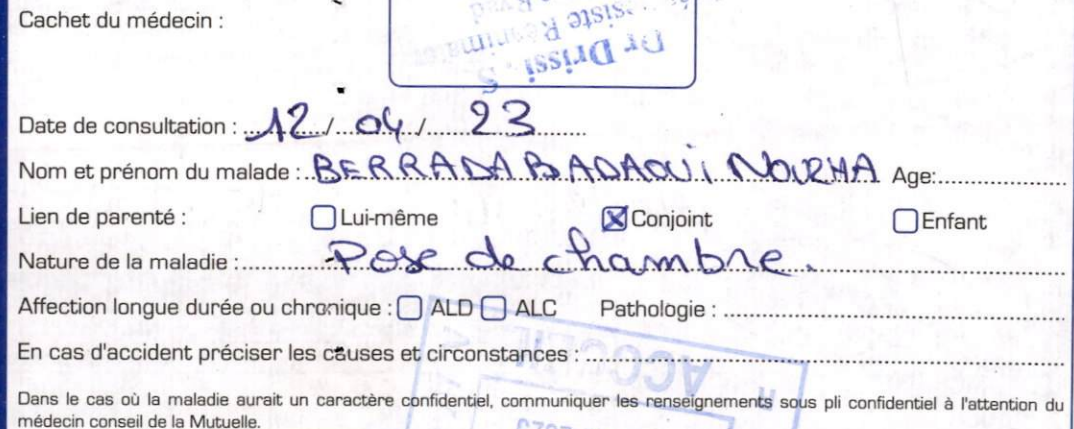 Cachet du médecin :
Dr Drissi . S
Date de consultation : 12 / 04 / 23
Nom et prénom du malade : BERRADA BADAOUI NOURHA Age:
Lien de parenté : Lui-même Conjoint Enfant
Nature de la maladie : Pose de chambre.
Affection longue durée ou chronique : ALD ALC Pathologie :
En cas d'accident préciser les causes et circonstances :
ACCUEIL
Dans le cas où la maladie aurait un caractère confidentiel, communiquer les renseignements sous pli confidentiel à l'attention du
médecin conseil de la Mutuelle.